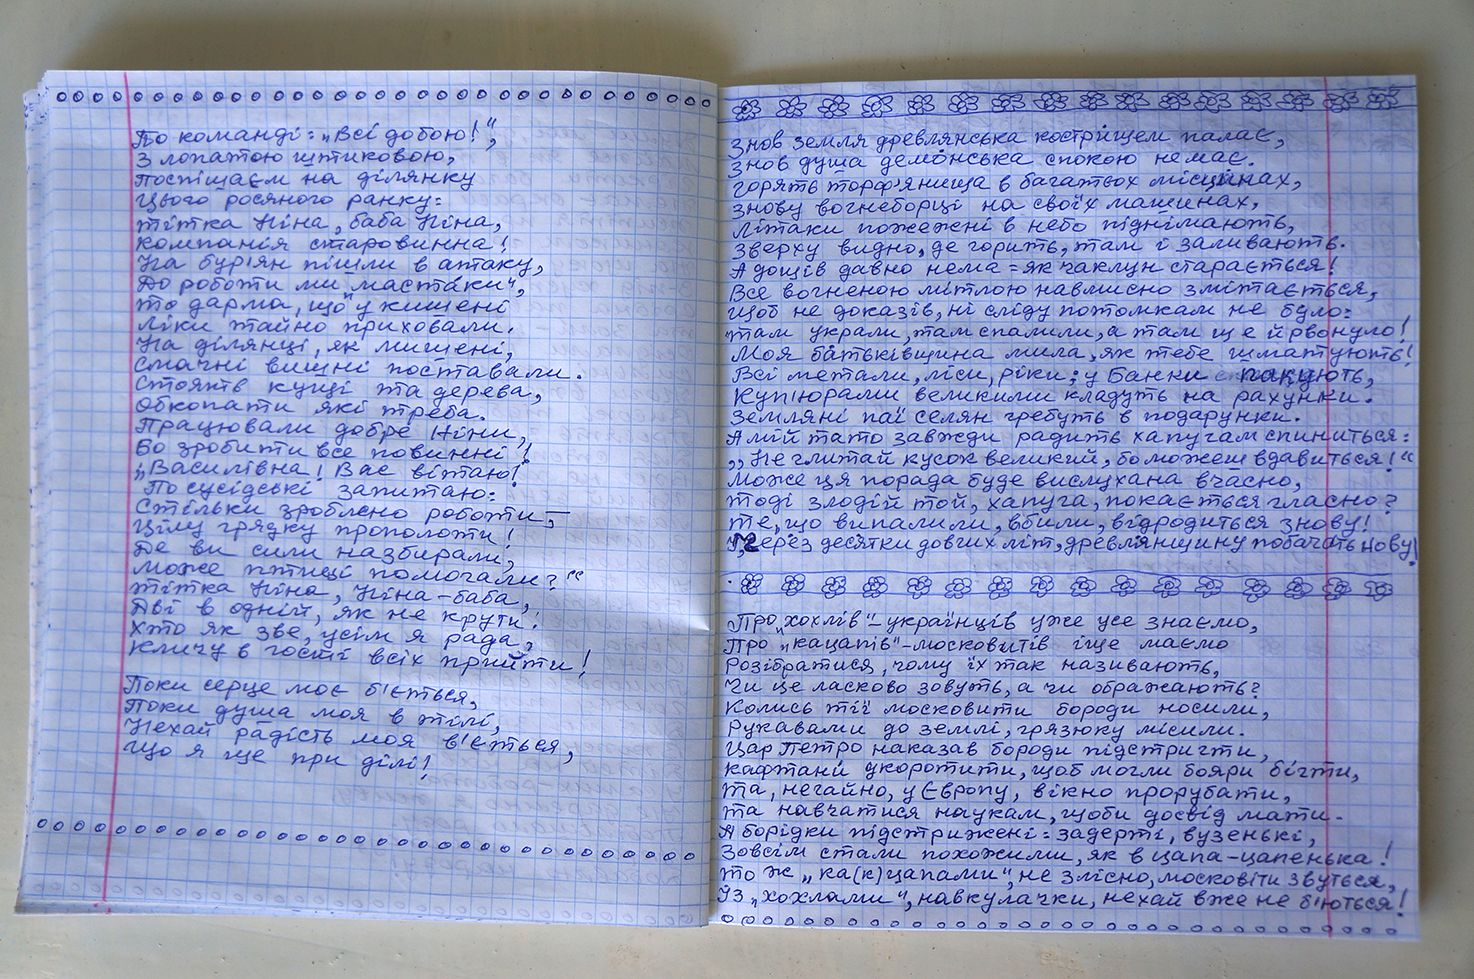 По команді: „Всі добою!",
З лопатою штиковою,
Поспішаєм на ділянку
Цього росяного ранку:
тітка Ніна, баба Ніна,
компанія старовинна!
На бур'ян пішли в атаку,
До роботи ми „мастаки",
то дарма, що у кишені
ліки тайно приховали.
На ділянці, як мишені,
Смачні вишні поставали.
Стоять кущі та дерева,
Обкопати які треба.
Працювали добре Ніни,
Бо зробити все повинні!
„Василівна! Вас вітаю!
По сусідські запитаю:
Стільки зроблено роботи –
Цілу грядку прополоти!
Де ви сили назбирали,
може птиці помогали?"
тітка Ніна, Ніна-баба,
Дві в одній, як не крути!
Хто як зве, усім я рада,
Кличу в гості всіх прийти!
Поки серце моє б'ється,
Поки душа моя в тілі,
Нехай радість моя в'ється,
Що я ще при ділі!
Знов земля древлянська кострищем палає,
Знов душа демонська спокою немає.
Горять торф'янища в багатьох місцинах,
Знову вогнеборці на своїх машинах,
Літаки пожежні в небо піднімають,
Зверху видно, де горить, там і заливають.
А дощів давно нема = як чаклун старається!
Все вогненою мітлою навмисно змітається,
Щоб не доказів, ні сліду потомкам не було:
там украли, там спалили, а там ще й рвонуло!
Моя батьківщина мила, як тебе шматують!
Всі метали, ліси, ріки; у Банки пакують,
Куп'юрами великими кладуть на рахунки.
Земляні паї селян гребуть в подарунки.
А мій тато завжди радить хапугам спиниться:
„Не глитай кусок великий, бо можеш вдавиться!"
Може ця порада буде вислухана вчасно,
тоді злодій той, хапуга, покається гласно?
те, що випалили, вбили, відродиться знову!
Через десятки довгих літ, древлянщину побачать нову!
Про „хохлів"-українців уже усе знаємо,
Про „кацапів"-московитів іще маємо
Розібратися, чому їх так називають,
Чи це ласково зовуть, а чи ображають?
Колись тії московити бороди носили,
Рукавами до землі, грязюку місили.
Цар Петро наказав бороди підстригти,
Кафтани укоротити, щоб могли бояри бігти,
та, негайно, у Європу, вікно прорубати,
та навчатися наукам, щоби досвід мати.
А борідки підстрижені = задерті, вузенькі,
Зовсім стали похожими, як в цапа-цапенька!
то ж „ка(к)цапами", не злісно, московіти звуться,
Із „хохлами", навкулачки, нехай вже не б'ються!